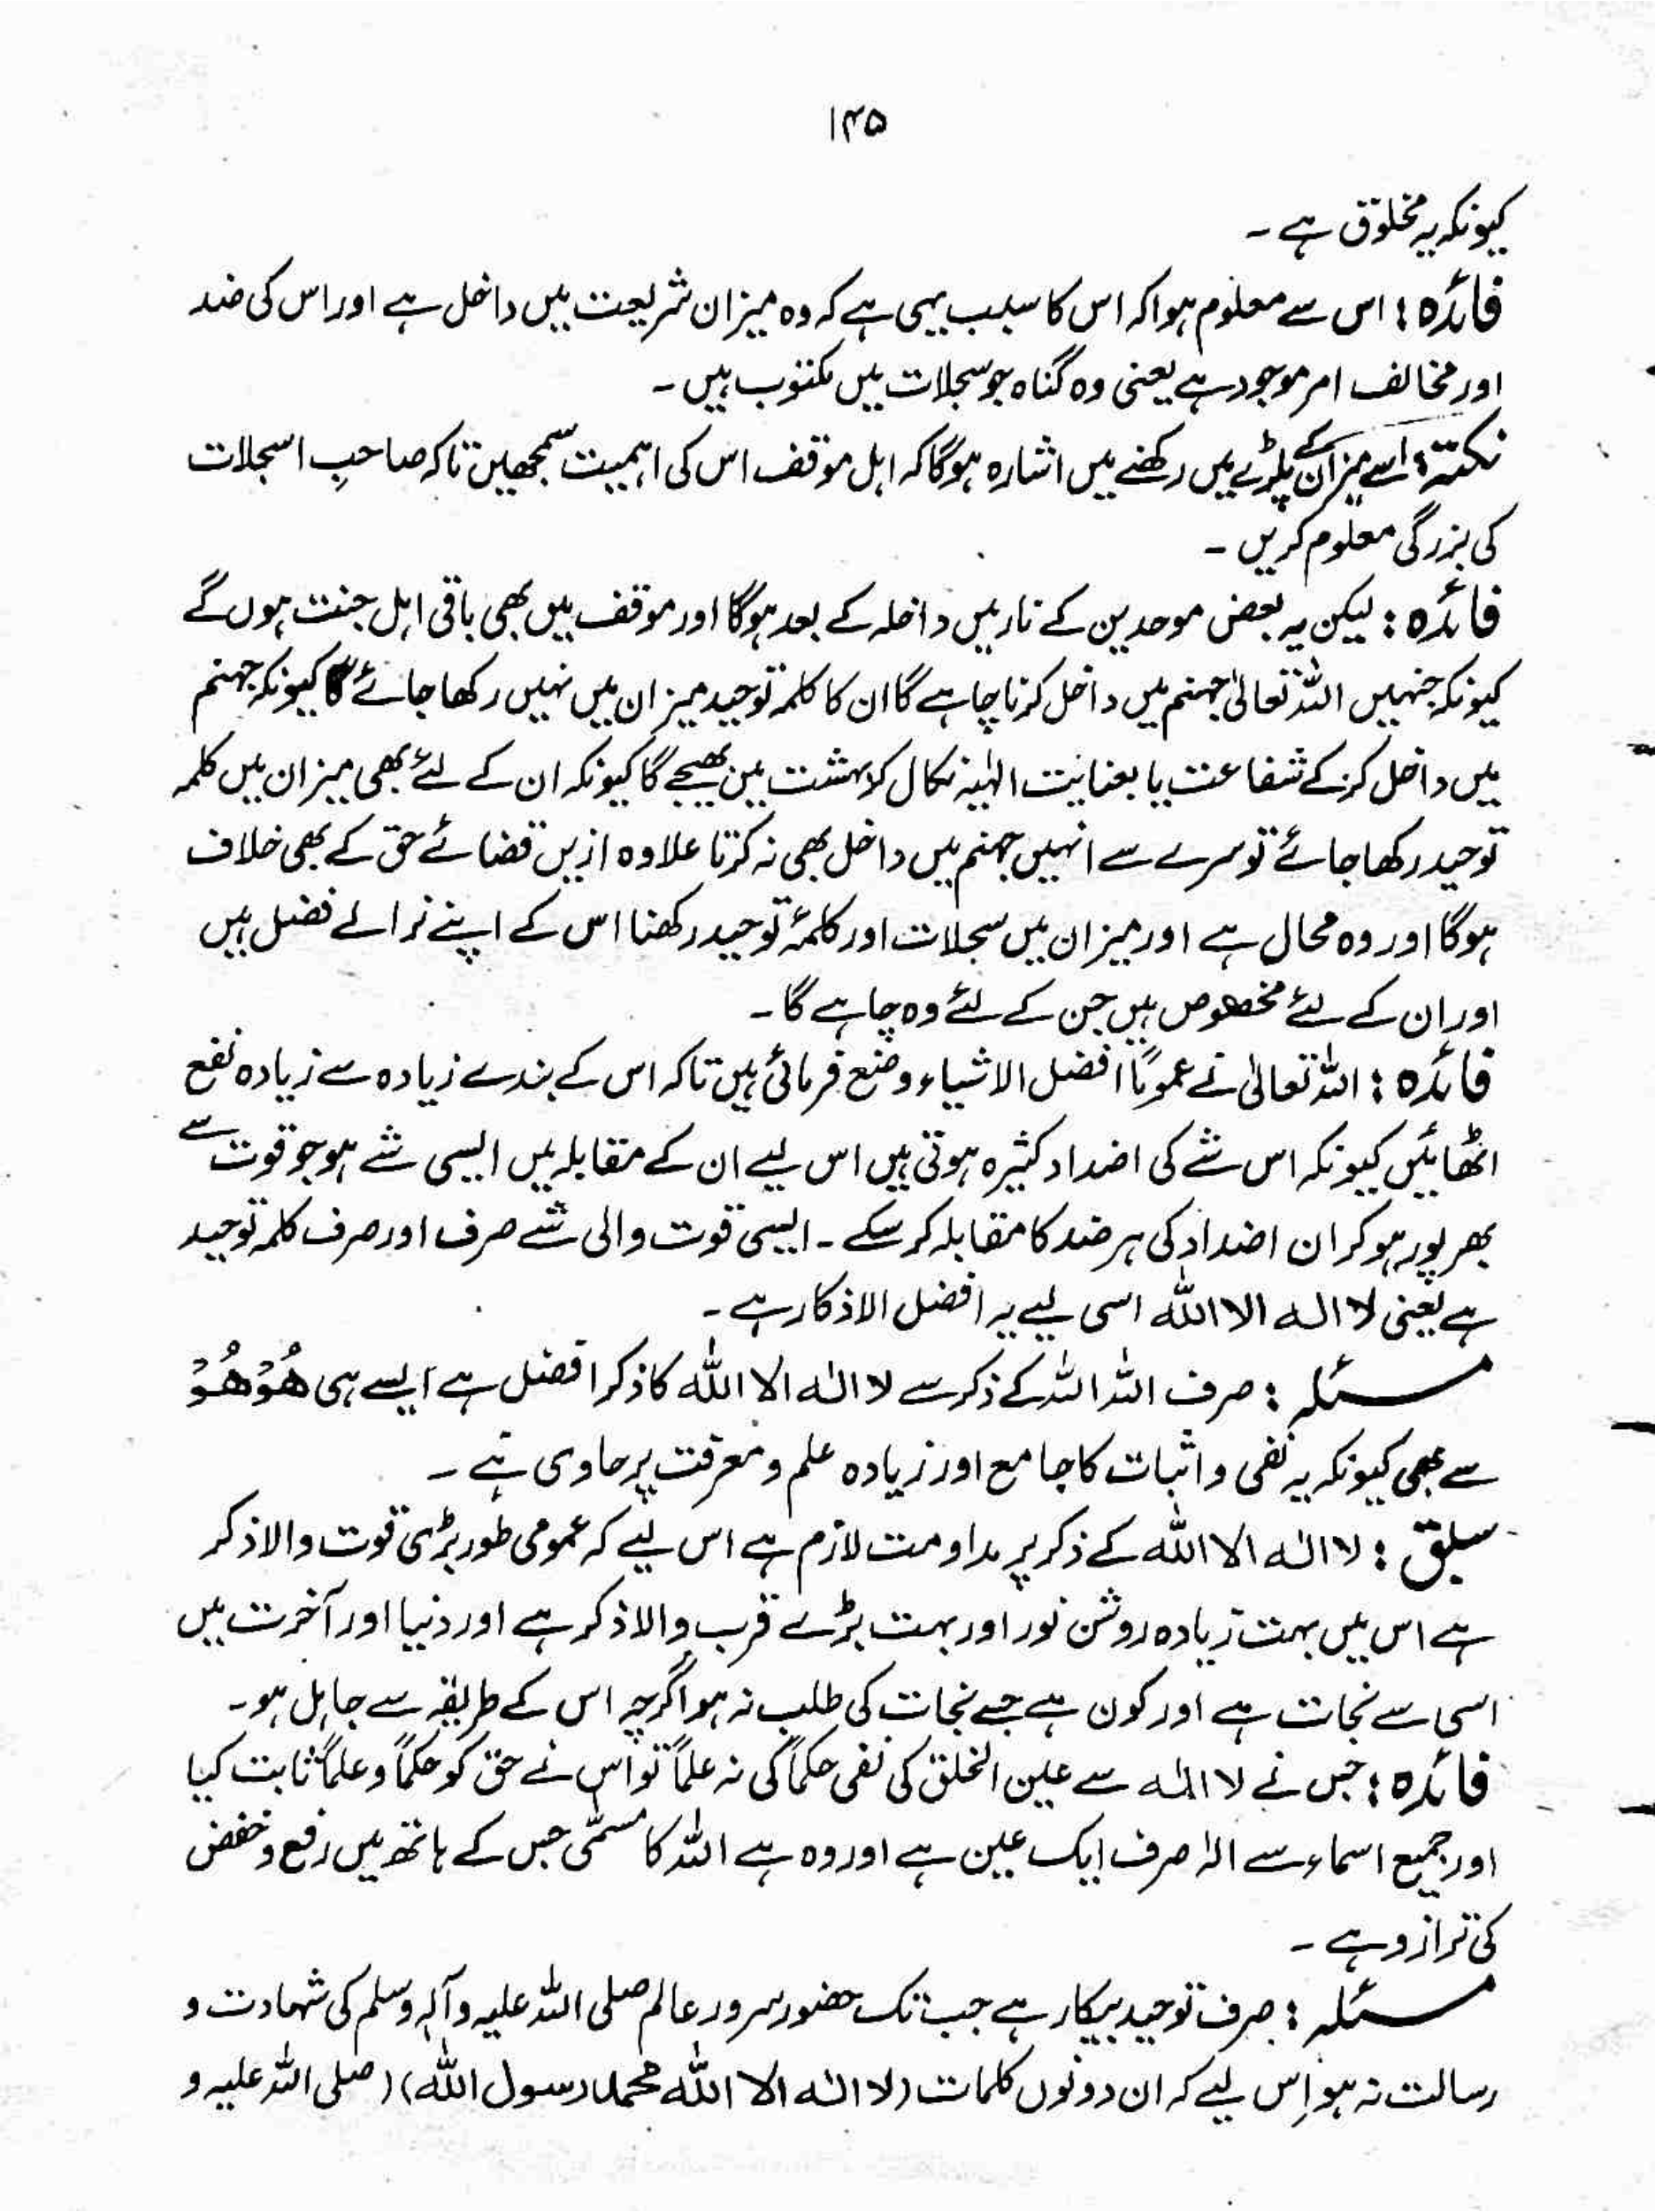 ۱۴۵
کیونکہ یہ مخلوق ہے ۔
فائدہ : اس سے معلوم ہوا کہ اس کا سبب یہی ہے کہ وہ میزان شریعت میں داخل ہے اور اس کی ضد
اور مخالف امر موجود ہے یعنی وہ گناہ جو سجلات میں مکتوب ہیں ۔
نکتہ : اسے میزان کے پلڑے میں رکھنے میں اشارہ ہوگا کہ اہل موقف اس کی اہمیت سمجھیں تاکہ صاحبِ اسجلات
کی بزرگی معلوم کریں ۔
فائدہ : لیکن یہ بعض موحدین کے نار میں داخلہ کے بعد ہوگا اور موقف میں بھی باقی اہل جنت ہوں گے
کیونکہ جنہیں اللہ تعالیٰ جہنم میں داخل کرنا چاہے گا ان کا کلمہ توحید میزان میں نہیں رکھا جائے گا کیونکہ جہنم
میں داخل کرکے شفاعت یا بعنایت الٰہیہ نکال کر بہشت میں بھیجے گا کیونکہ ان کے لئے بھی میزان میں کلمہ
توحید رکھا جائے تو سرے سے انہیں جہنم میں داخل بھی نہ کرتا علاوہ ازیں قضائے حق کے بھی خلاف
ہوگا اور وہ محال ہے اور میزان میں سجلات اور کلمۂ توحید رکھنا اس کے اپنے نرالے فضل ہیں
اور ان کے لئے مخصوص ہیں جن کے لئے وہ چاہے گا ۔
فائدہ : اللہ تعالیٰ نے عموماً افضل الاشیاء وضع فرمائی ہیں تاکہ اس کے بندے زیادہ سے زیادہ نفع
اٹھائیں کیونکہ اس شے کی اضداد کثیرہ ہوتی ہیں اس لیے ان کے مقابلہ میں ایسی شے ہو جو قوت سے
بھرپور ہو کر ان اضداد کی ہر ضد کا مقابلہ کر سکے ۔ ایسی قوت والی شے صرف اور صرف کلمہ توحید
ہے یعنی لا الہ الا اللہ اسی لیے یہ افضل الاذکار ہے ۔
مسئلہ : صرف اللہ اللہ کے ذکر سے لا الٰہ الا اللہ کا ذکر افضل ہے ایسے ہی ھُوْ ھُوْ
سے بھی کیونکہ یہ نفی و اثبات کا جامع اور زیادہ علم و معرفت پر حاوی ہے ۔
سبق : لا الٰہ الا اللہ کے ذکر پر مداومت لازم ہے اس لیے کہ عمومی طور بڑی قوت والا ذکر
ہے اس میں بہت زیادہ روشن نور اور بہت بڑے قرب والا ذکر ہے اور دنیا اور آخرت میں
اسی سے نجات ہے اور کون ہے جسے نجات کی طلب نہ ہو اگرچہ اس کے طریقہ سے جاہل ہو۔
فائدہ : جس نے لا الہ سے عین الخلق کی نفی حکماً کی نہ علماً تو اس نے حق کو حکماً و علماً ثابت کیا
اور جمیع اسماء سے الٰہ صرف ایک عین ہے اور وہ ہے اللہ کا مسمّٰی جس کے ہاتھ میں رفع و خفض
کی ترازو ہے ۔
مسئلہ : صرف توحید بیکار ہے جب تک حضور سرور عالم صلی اللہ علیہ وآلہ وسلم کی شہادت و
رسالت نہ ہو اِس لیے کہ ان دونوں کلمات (لا الٰہ الا اللہ محمد رسول اللہ) (صلی اللہ علیہ و